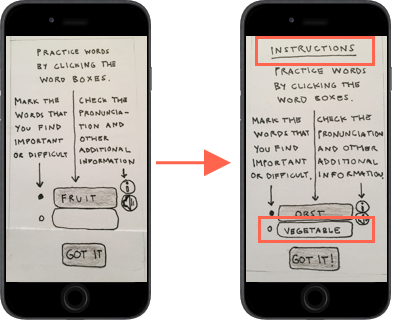 PRACTICE WORDS
BY CLICKING THE
WORD BOXES.
MARK THE
WORDS THAT
YOU FIND
IMPORTANT
OR DIFFICULT
CHECK THE
PRONUNCIA-
TION AND
OTHER
ADDITIONAL
INFORMATION
FRUIT
GOT IT
INSTRUCTIONS
PRACTICE WORDS
BY CLICKING THE
WORD BOXES.
MARK THE
WORDS THAT
YOU FIND
IMPORTANT
OR DIFFICULT.
CHECK THE
PRONUNCIATION
AND OTHER
ADDITIONAL
INFORMATION.
OBST
VEGETABLE
GOT IT!